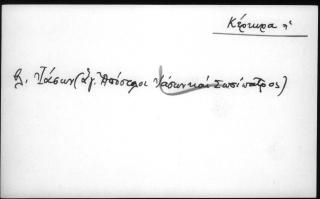 Κέρκυρα
βλ. Ἰάσων (ἁγ. Ἀπόστολοι Ἰάσων καὶ Σωσίπατρος)